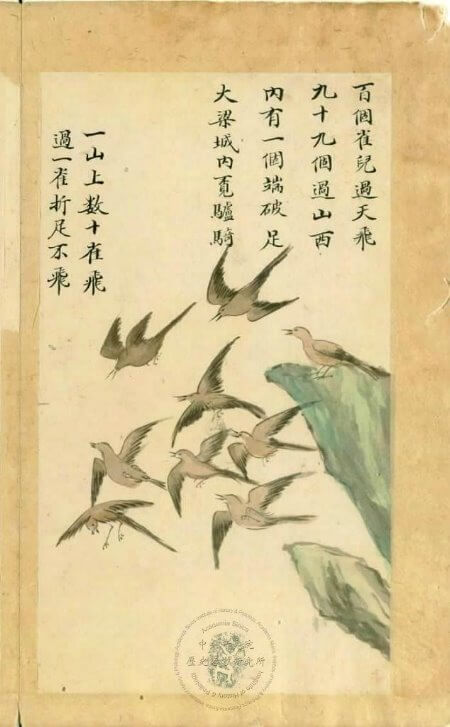 百個雀兒過天飛
九十九個過山西
內有一個端破足
大梁城內覓驢騎
一山上数十雀飛
過一雀折足不飛
Academia Sinica
歷史語言研究所